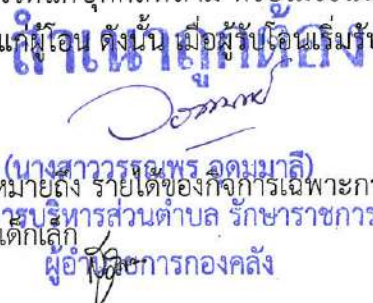 แก่ผู้โอน ดังนั้น เมื่อผู้รับโอนเริ่มรับ
สำเนาถูกต้อง
(นางสาววรรณพร อุดมมาลี)
หมายถึง รายได้ของกิจการเฉพาะกา
ารบริหารส่วนตำบล รักษาราชการ
เด็กเล็ก
ผู้อำนวยการกองคลัง